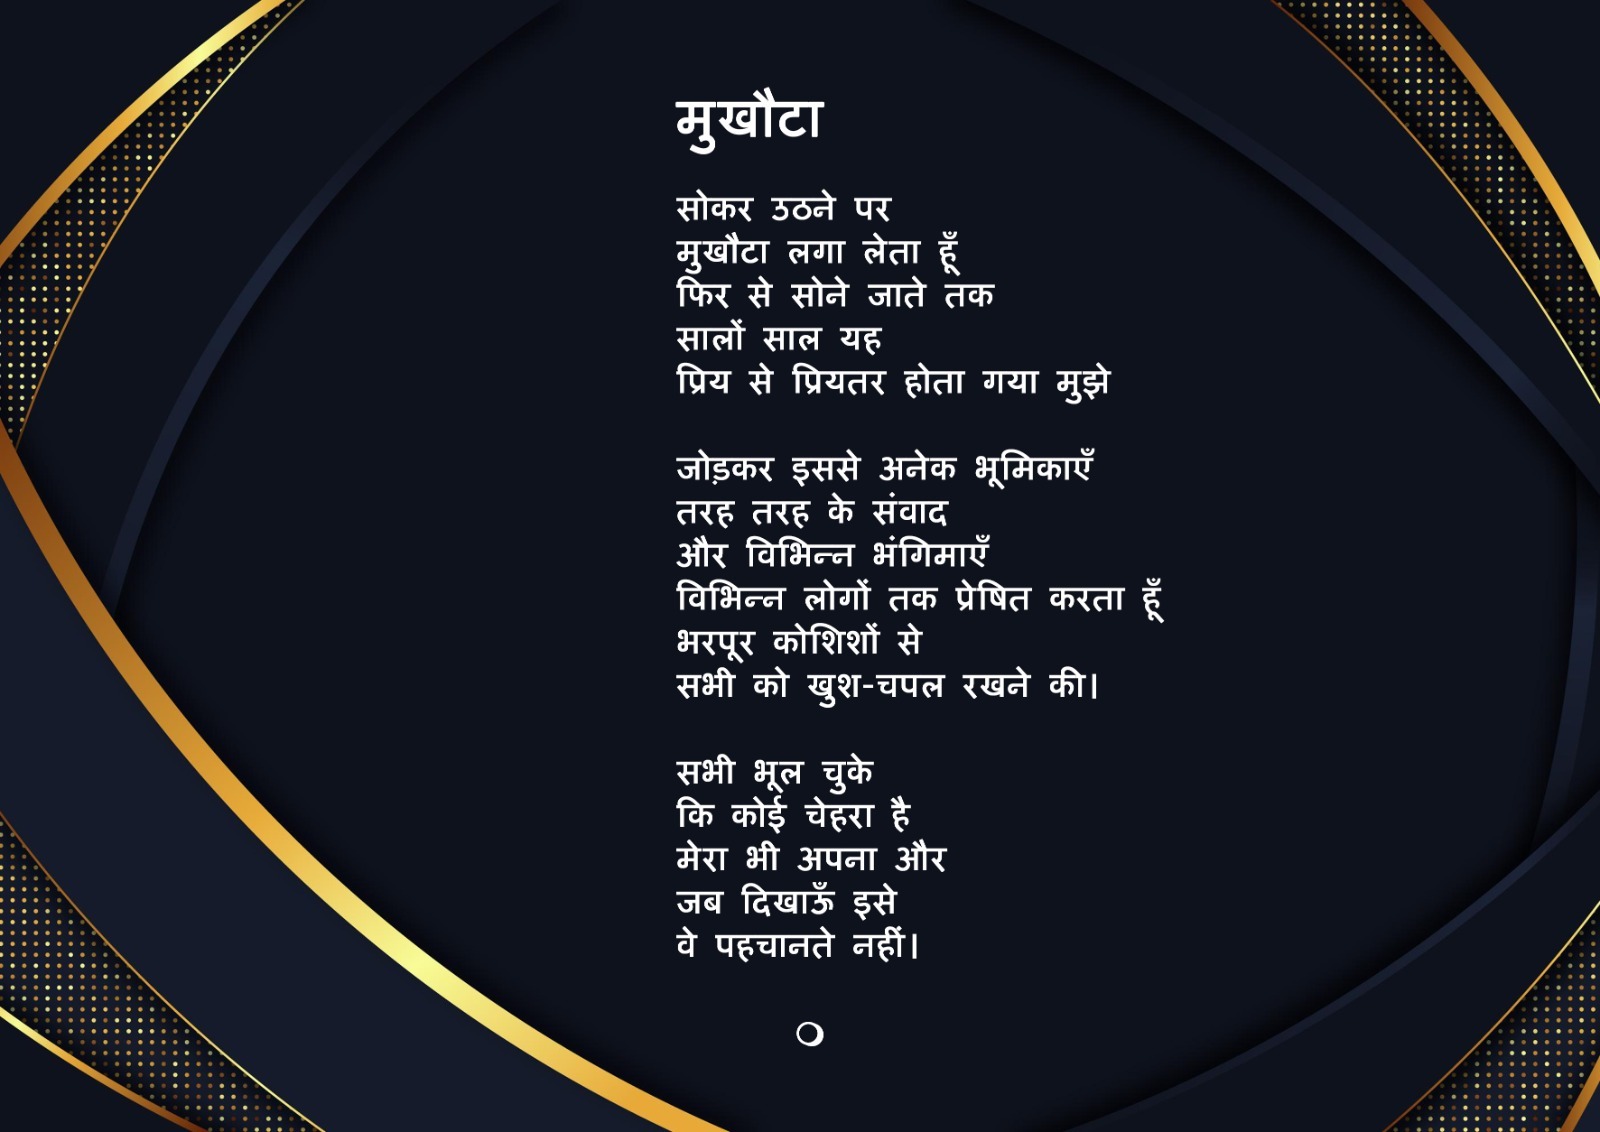 मुखौटा
सोकर उठने पर
मुखौटा लगा लेता हूँ
फिर से सोने जाते तक
सालों साल यह
प्रिय से प्रियतर होता गया मुझे
जोड़कर इससे अनेक भूमिकाएँ
तरह तरह के संवाद
और विभिन्न भंगिमाएँ
विभिन्न लोगों तक प्रेषित करता हूँ
भरपूर कोशिशों से
सभी को खुश-चपल रखने की।
सभी भूल चुके
कि कोई चेहरा है
मेरा भी अपना और
जब दिखाऊँ इसे
वे पहचानते नहीं।